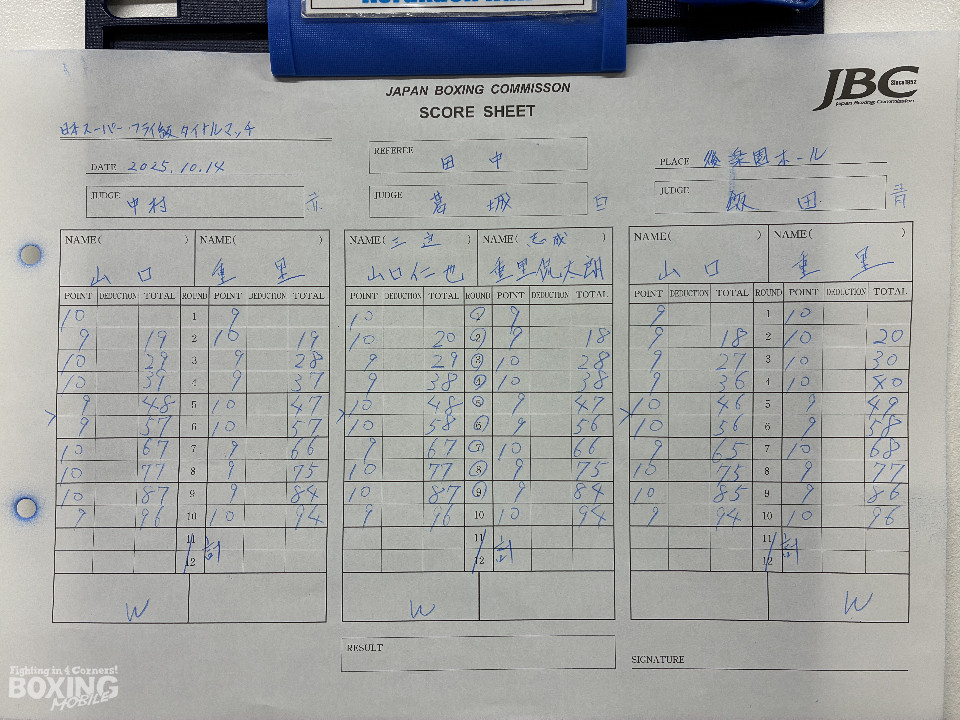 JAPAN BOXING COMMISSON
SCORE SHEET
JBC Since1952
Japan Boxing Commission
日本スーパー・フライ級タイトルマッチ
DATE 2025.10.14
REFEREE 田中
PLACE 後楽園ホール
JUDGE 中村 赤
JUDGE 葛城 白
JUDGE 飯田 青
NAME( ) NAME( ) NAME(三迫) NAME(志成) NAME( ) NAME( )
山口 重里 山口仁也 重里侃太朗 山口 重里
POINT DEDUCTION TOTAL ROUND POINT DEDUCTION TOTAL POINT DEDUCTION TOTAL ROUND POINT DEDUCTION TOTAL POINT DEDUCTION TOTAL ROUND POINT DEDUCTION TOTAL
10 1 9 10 1 9 9 1 10
9 19 2 10 19 10 20 2 9 18 9 18 2 10 20
10 29 3 9 28 9 29 3 10 28 9 27 3 10 30
10 39 4 9 37 9 38 4 10 38 9 36 4 10 40
9 48 5 10 47 10 48 5 9 47 10 46 5 9 49
9 57 6 10 57 10 58 6 9 56 10 56 6 9 58
10 67 7 9 66 9 67 7 10 66 9 65 7 10 68
10 77 8 9 75 10 77 8 9 75 10 75 8 9 77
10 87 9 9 84 10 87 9 9 84 10 85 9 9 86
9 96 10 10 94 9 96 10 10 94 9 94 10 10 96
11 計 11 計 11 計
12 12 12
W W W
RESULT
SIGNATURE
Fighting in 4 Corners!
BOXING
MOBILE